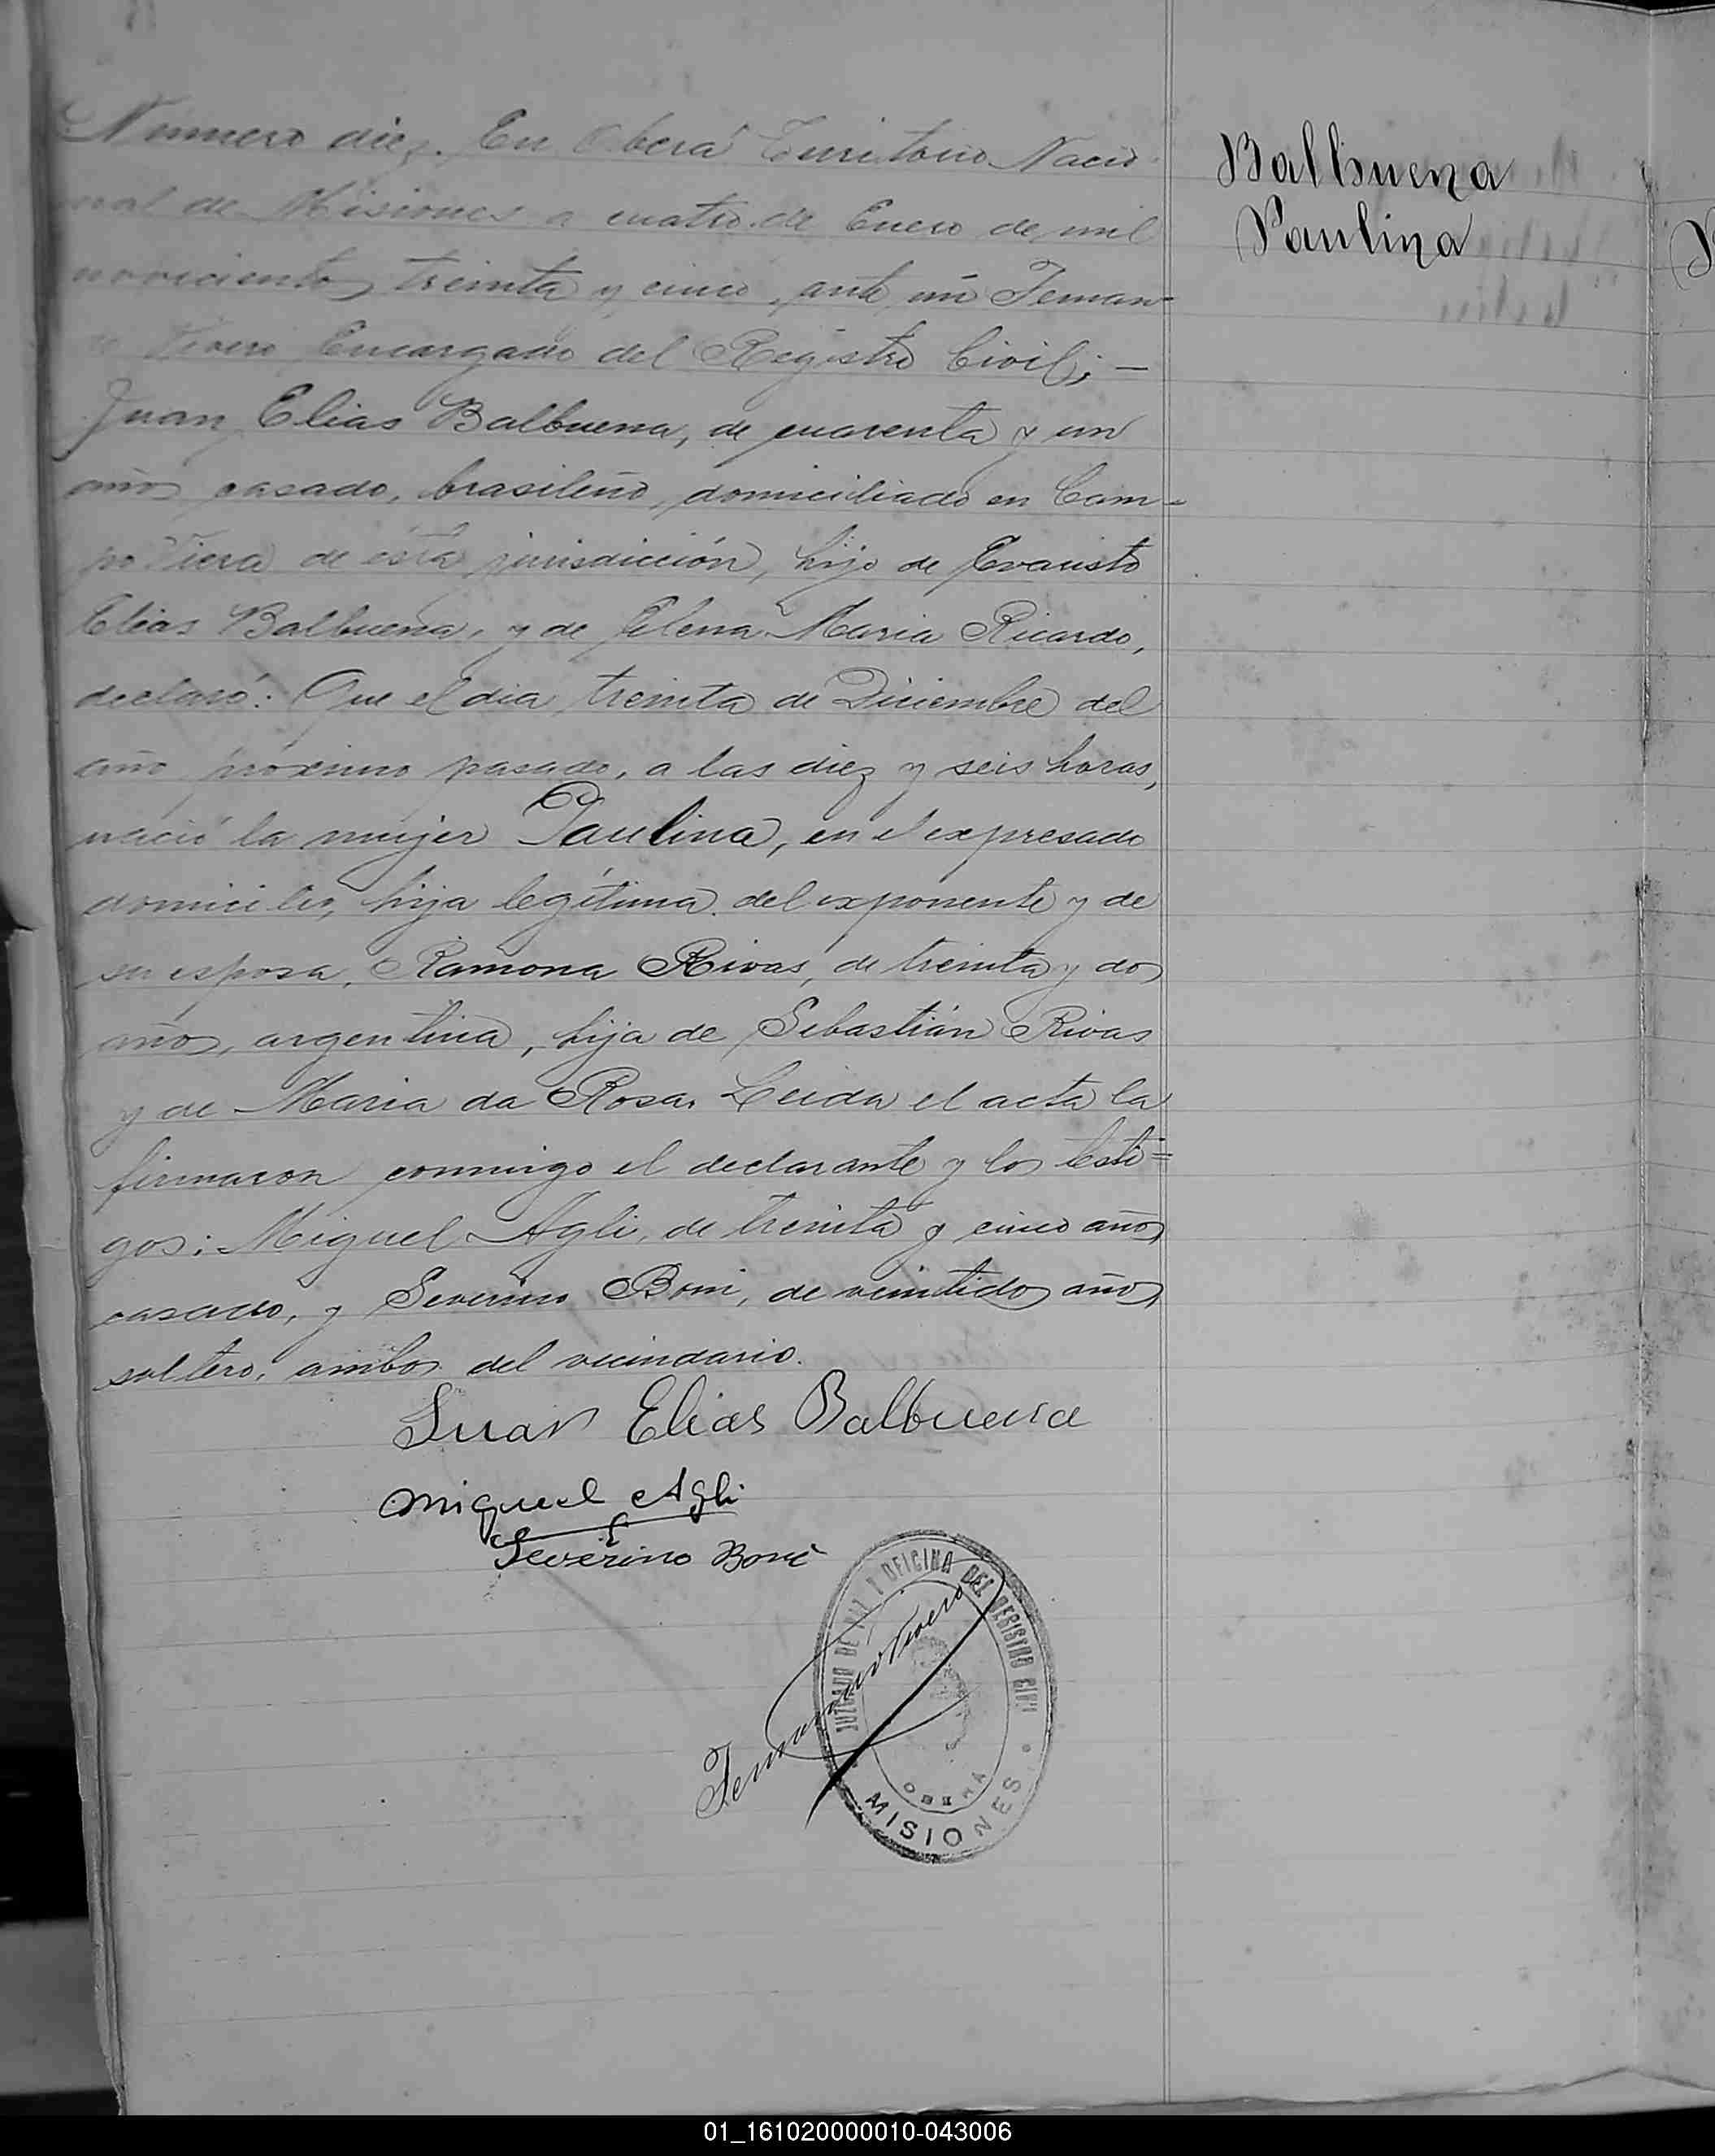 Número diez. En Oberá Territorio Nacio-
nal de Misiones a cuatro de Enero de mil
novecientos treinta y cinco, ante mí Fernan-
do Tivero Encargado del Registro Civil; —
Juan Elias Balbuena, de cuarenta y un
años casado, brasileño, domiciliado en Cam-
po Viera de ésta jurisdicción, hijo de Evaristo
Elias Balbuena, y de Elena Maria Ricardo,
declaró: Que el dia treinta de Diciembre del
año próximo pasado, a las diez y seis horas,
nació la mujer Paulina, en el expresado
domicilio, hija legítima del exponente y de
su esposa, Ramona Rivas, de treinta y dos
años, argentina, hija de Sebastián Rivas
y de Maria da Rosa. Leida el acta la
firmaron conmigo el declarante y los testi=
gos: Miguel Agli, de treinta y cinco años,
casado, y Severino Boni, de veintidos años,
soltero, ambos del vecindario.
Juan Elias Balbuena
Miguel Agli
Severino Boni
Fernando Tivero
JUZGADO DE PAZ Y OFICINA DEL REGISTRO CIVIL
OBERA
MISIONES
Balbuena
Paulina
01_161020000010-043006